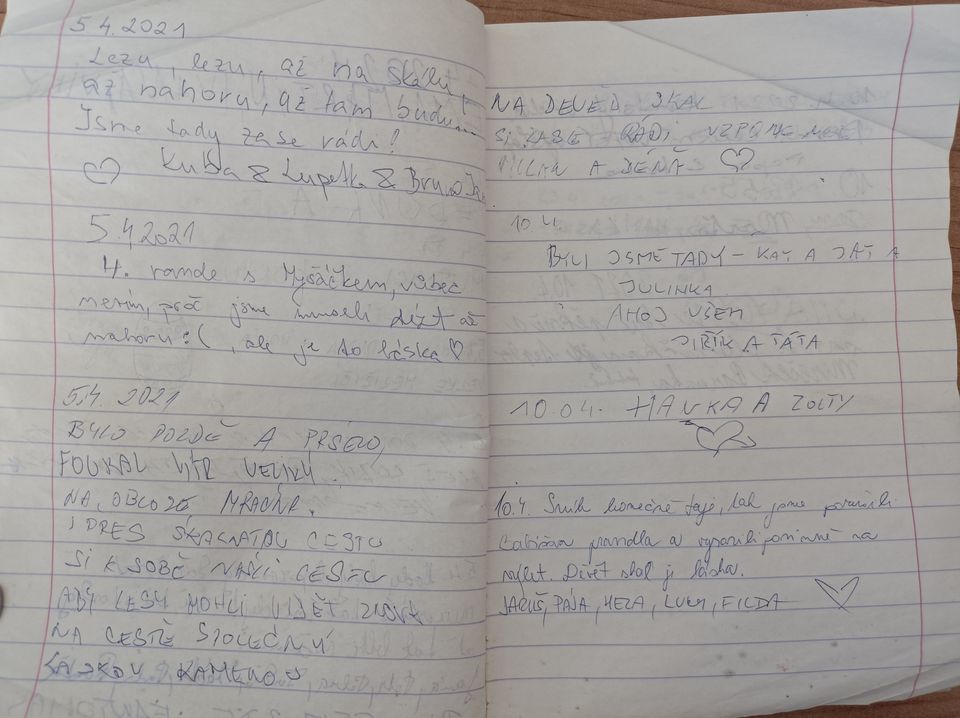 5.4.2021
Lezu, lezu, až na skálu,
až nahoru, až tam budu....
Jsme tady zase rádi!
♡ Kuba & Lupetka & Bruno
5.4.2021
4. rande s Myšáčkem, vůbec
nevím, proč jsme museli až
nahoru :(, ale je to láska ♡
5.4. 2021
BYLO POZDĚ A PRŠELO,
FOUKAL VÍTR VELIKÝ.
NA OBLOZE MRAČNA.
I PŘES SKALNATOU CESTU
SI K SOBĚ NAŠLI CESTU
ABY LESY MOHLI VIDĚT ZNOVA
NA CESTĚ SPOLEČNÝ
LÁSKOU
NA DEVĚT SKAL
SI ZASE RÁDI VZPOMENEME
MILAN A DĚNA ♡
10.4.
BYLI JSME TADY - KÁŤA JÁŤA
JULINKA
AHOJ VŠEM
JIŘÍK A TÁTA
10.04. HANKA A ZOLTY
10.4. Sníh konečně taje, tak jsme
a na
výlet. Devět skal je láska.
JARUŠ, PÁJA, HELA, LUKY, FILDA ♡